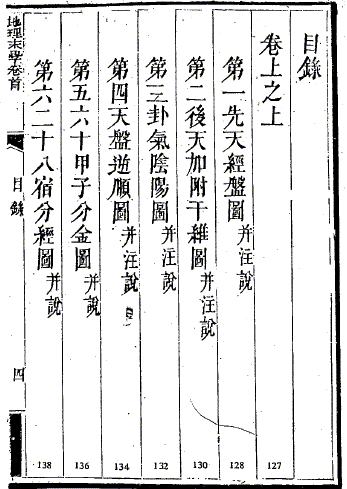 目錄
卷上之上 127
第一先天經盤圖 并注說 128
第二後天加附干維圖 并注說 130
第三卦氣陰陽圖 并注說 132
第四天盤逆順圖 并注說 134
第五六十甲子分金圖 并說 136
第六二十八宿分經圖 并說 138
地理末學卷首
目錄
四